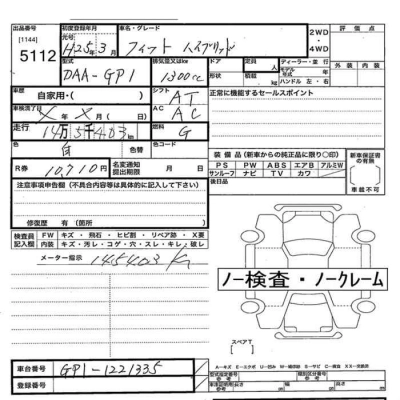 出品番号 初度登録年月 車名・グレード 評価点
[1144] 元号
5112 H25年3月 フィット ハイブリッド 2WD・4WD 外装 内装
型式 排気量又はkw ドア 定員 ディーラー・並行
DAA-GP1 1300cc 形状 積載 人 kg モデル年式 年 ハンドル 左・右
車歴 自家用・( ) シフト AT 正常に機能するセールスポイント
車検満了日 ×年×月 日 AC AC
走行 14万5千403km 燃料 G
色 白 色替 色コード
R券 10,710円 名変通知提出期限 月 日
装備品(新車からの純正品に限り○印) 新車保証書の有無
PS PW ABS エアB アルミW 有
サンルーフ ナビ TV カワ 車載不可
後日品
注意事項申告欄(不具合内容等は具体的に記入して下さい)
修復歴 有(箇所 )
検査員記入欄 FW キズ・飛石・ヒビ割・リペア跡・X要
内装 キズ・汚レ・コゲ・穴・スレ・キレ・破レ
メーター指示 145403 K
ノー検査・ノークレーム
スペアT
[ ]
車台番号 GP1-1221335
登録番号
型式指定番号 類別区分番号
参考 参考
長さ 幅 高さ